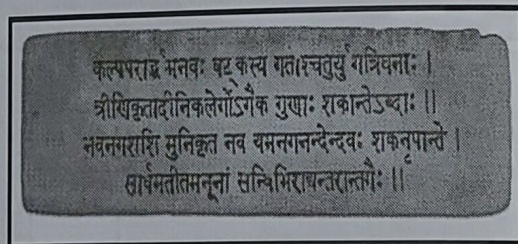 कल्पपरार्द्ध मनवः षट् कस्य गताश्चतुर्यु गत्रिघनाः |
त्रीणिकृतादीनिकलेर्गोऽगैक गुणाः शकान्तेऽब्दाः ||
नवनगशशि मुनिकृत नव यमनगनन्देन्दवः शकनृपान्ते |
सार्धमतीतमनूनां सन्धिभिराद्यन्तरान्तगैः ||